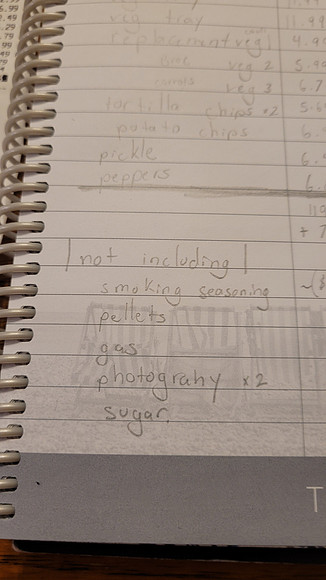 .99
.29
.79
.99
.49
veg tray 11.99
replacement veg 4.9
veg 2 5.9
veg 3 6.7
tortilla chips x2 5.6
potato chips 6.
pickle 6.9
peppers 6.
110
+ 7
| not including |
smoking seasoning ~($
pellets
gas
photograhy x2
sugar.
T